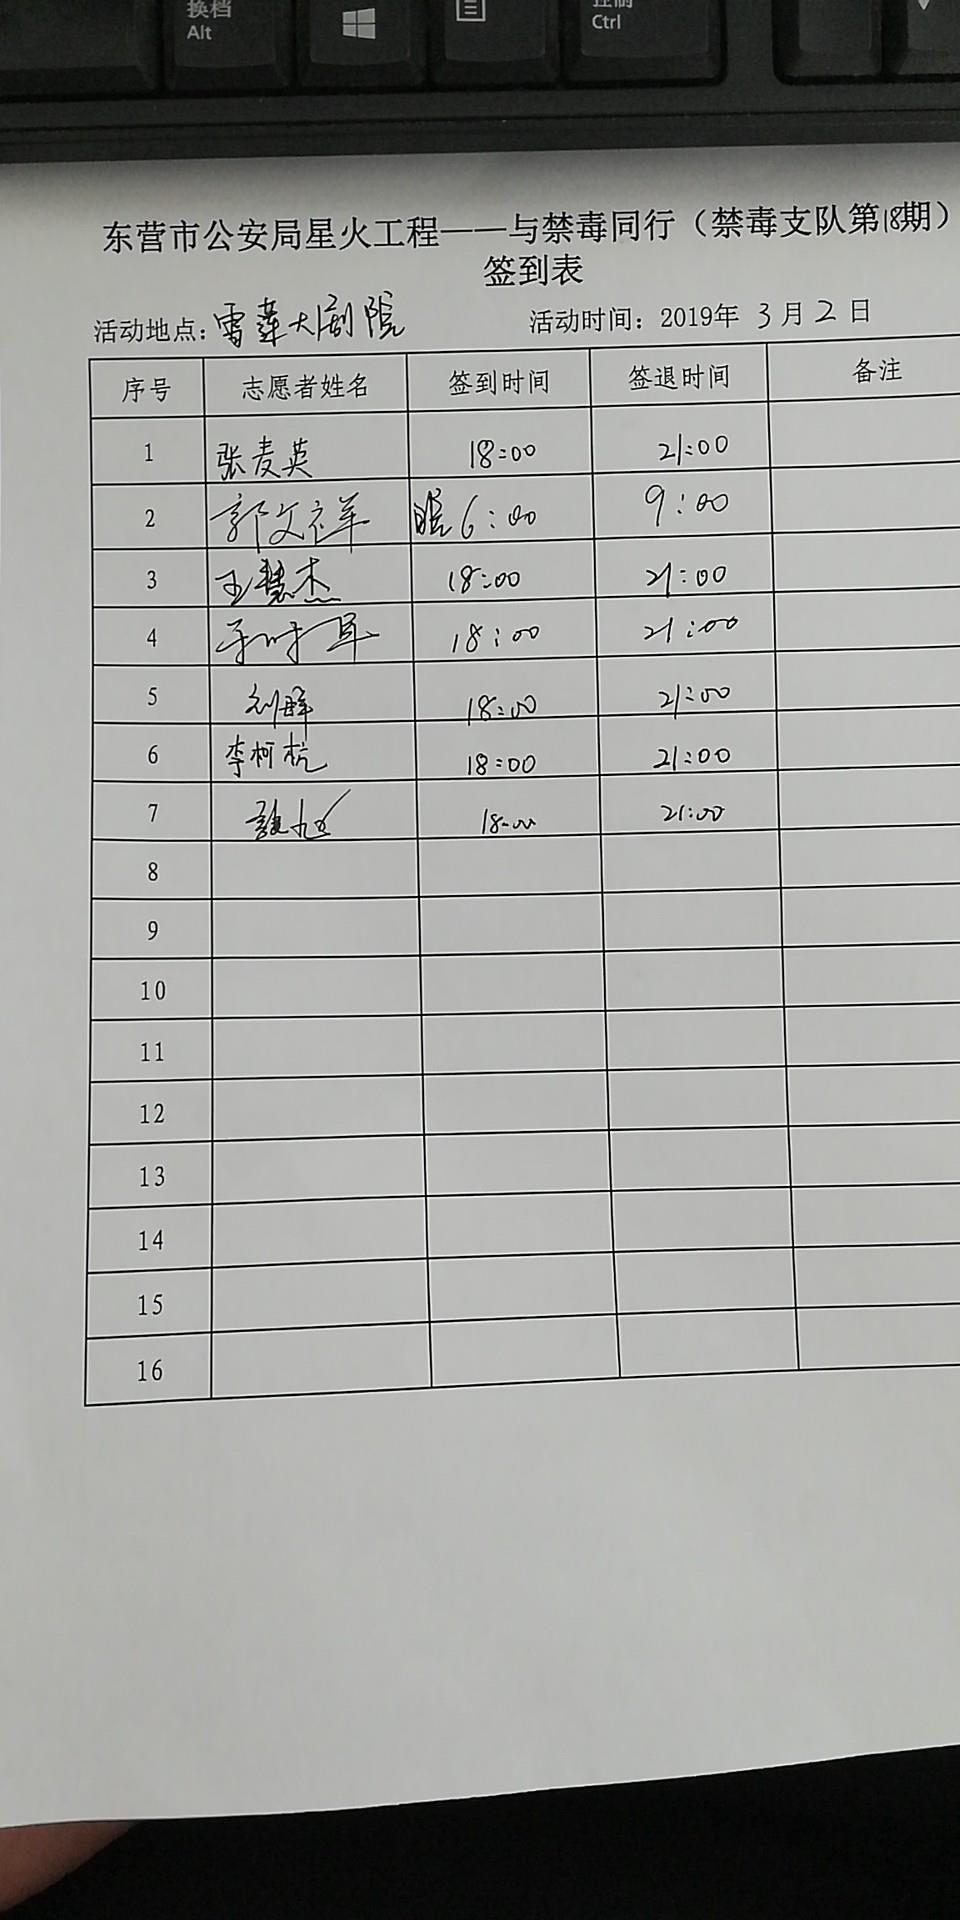 换档
Alt
控制
Ctrl
东营市公安局星火工程——与禁毒同行（禁毒支队第18期）
签到表
活动地点：雪莲大剧院 活动时间：2019年 3月 2日
序号 志愿者姓名 签到时间 签退时间 备注
1 张麦英 18:00 21:00
2 郭文祥 晚6:00 9:00
3 王慧杰 18:00 21:00
4 18:00 21:00
5 刘晖 18:00 21:00
6 李柯杭 18:00 21:00
7 18:00 21:00
8
9
10
11
12
13
14
15
16